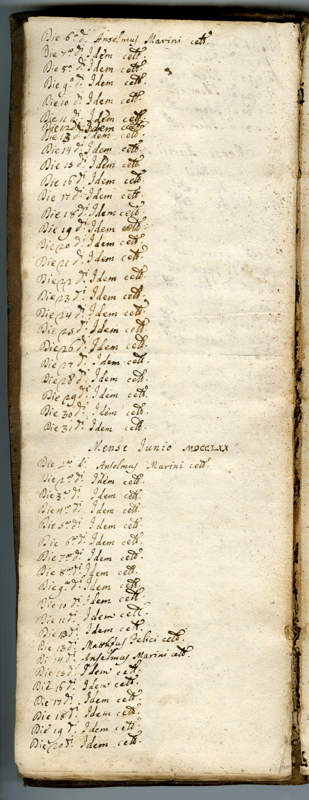 Die 6ª di. Anselmus Marini cellᵗ.
Die 7ª di Idem cellᵗ.
Die 8ª di. Idem cellᵗ.
Die 9ª di. Idem cellᵗ.
Die 10 di. Idem cellᵗ.
Die 11 di. Idem cellᵗ.
Die 12 di. Idem cellᵗ.
Die 13 di. Idem cellᵗ.
Die 14 di. Idem cellᵗ.
Die 15 di. Idem cellᵗ.
Die 16 di. Idem cellᵗ.
Die 17 di. Idem cellᵗ.
Die 18 di. Idem cellᵗ.
Die 19 di. Idem cellᵗ.
Die 20 di. Idem cellᵗ.
Die 21 di. Idem cellᵗ.
Die 22 di. Idem cellᵗ.
Die 23 di. Idem cellᵗ.
Die 24 di. Idem cellᵗ.
Die 25 di. Idem cellᵗ.
Die 26 di. Idem cellᵗ.
Die 27 di. Idem cellᵗ.
Die 28 di. Idem cellᵗ.
Die 29 di. Idem cellᵗ.
Die 30 di. Idem cellᵗ.
Die 31 di. Idem cellᵗ.
Mense Junio MDCCLXX
Die 1ª di. Anselmus Marini cellᵗ.
Die 2ª di. Idem cellᵗ.
Die 3ª di. Idem cellᵗ.
Die 4ª di. Idem cellᵗ.
Die 5ª di. Idem cellᵗ.
Die 6ª di. Idem cellᵗ.
Die 7ª di. Idem cellᵗ.
Die 8ª di. Idem cellᵗ.
Die 9ª di. Idem cellᵗ.
Die 10 di. Idem cellᵗ.
Die 11 di. Idem cellᵗ.
Die 12 di. Idem cellᵗ.
Die 13 di. Felici cellᵗ.
Di 14 di. Anselmus Marini cellᵗ.
Die 15 di. Idem cellᵗ.
Die 16 di. Idem cellᵗ.
Die 17 di. Idem cellᵗ.
Die 18 di. Idem cellᵗ.
Die 19 di. Idem cellᵗ.
Die 20 di. Idem cellᵗ.